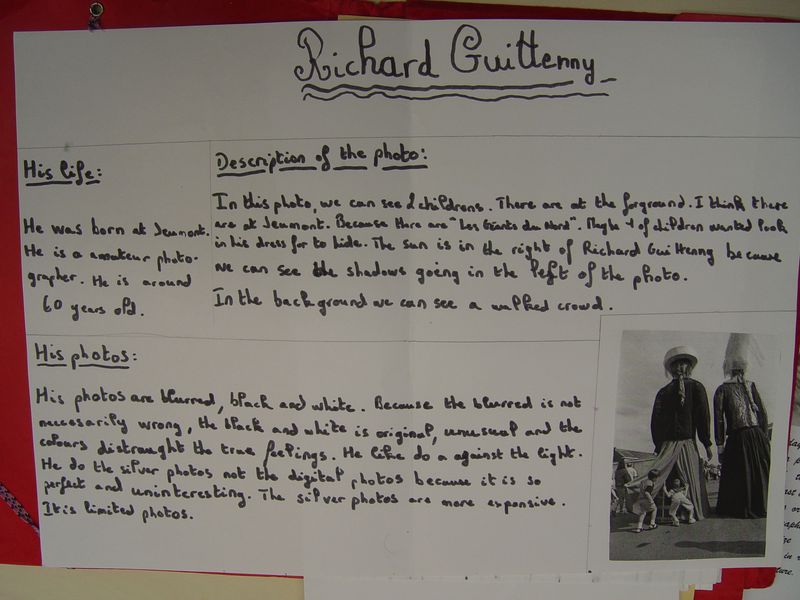 Richard Guittenny
His life:
He was born at Jeumont.
He is a amateur photo-
grapher. He is around
60 years old.
Description of the photo:
In this photo, we can see 2 childrens. There are at the forground. I think there
are at Jeumont. Because there are "Les Géants du Nord". Maybe 1 of children wanted look
in his dress for to hide. The sun is in the right of Richard Guittenny because
we can see the shadows going in the left of the photo.
In the background we can see a walked crowd.
His photos:
His photos are blurred, black and white. Because the blurred is not
necessarily wrong, the black and white is original, unusual and the
colours distraught the true feelings. He like do a against the light.
He do the silver photos not the digital photos because it is so
perfect and uninteresting. The silver photos are more expensive.
It is limited photos.